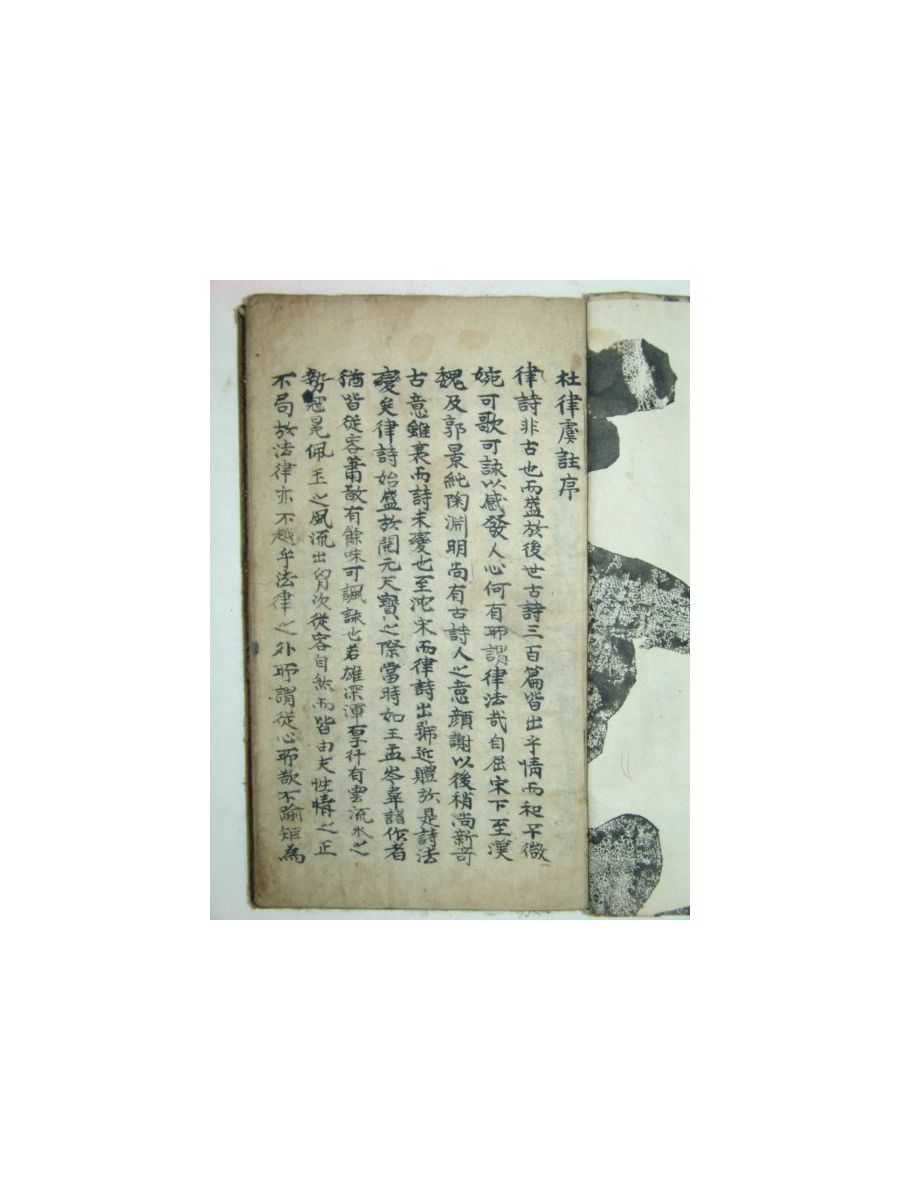 杜律虞註序
律詩非古也而盛於後世古詩三百篇皆出乎情而和平微
婉可歌可詠以感發人心何有所謂律法哉自屈宋下至漢
魏及郭景純陶淵明尚有古詩人之意顔謝以後稍尚新奇
古意雖衰而詩未變也至沈宋而律詩出號近體於是詩法
變矣律詩始盛於開元天寶之際當時如王孟岑韋諸作者
猶皆從容蕭散有餘味可諷詠也若雄深渾厚有行雲流水之
勢冠冕佩玉之風流出胷次從容自然而皆由夫性情之正
不局於法律亦不越乎法律之外所謂從心所欲不踰矩為